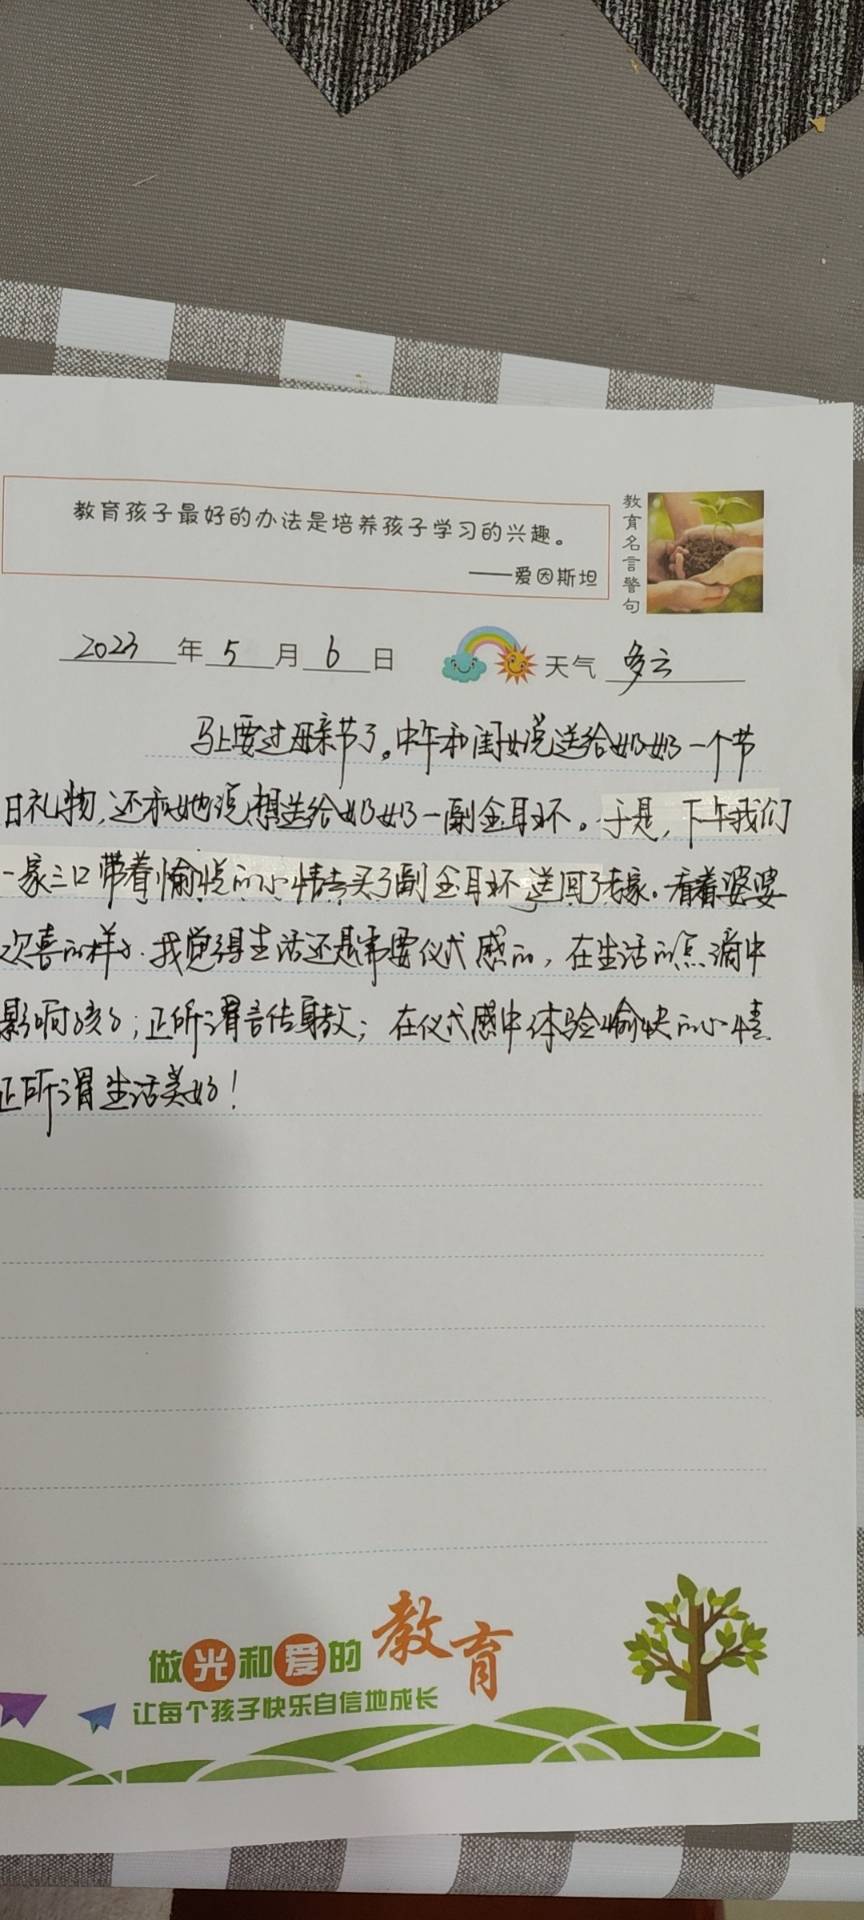 教育孩子最好的办法是培养孩子学习的兴趣。
——爱因斯坦
教育名言警句
2023年5月6日 天气 多云
马上要过母亲节了。中午和闺女说送给奶奶一个节
日礼物,还和她说想送给奶奶一副金耳环。于是,下午我们
一家三口带着愉悦的心情去买了副金耳环送回了老家。看着婆婆
欢喜的样子.我觉得生活还是需要仪式感的,在生活的点滴中
影响孩子;正所谓言传身教;在仪式感中体验愉快的心情.
正所谓生活美好!
做光和爱的教育
让每个孩子快乐自信地成长